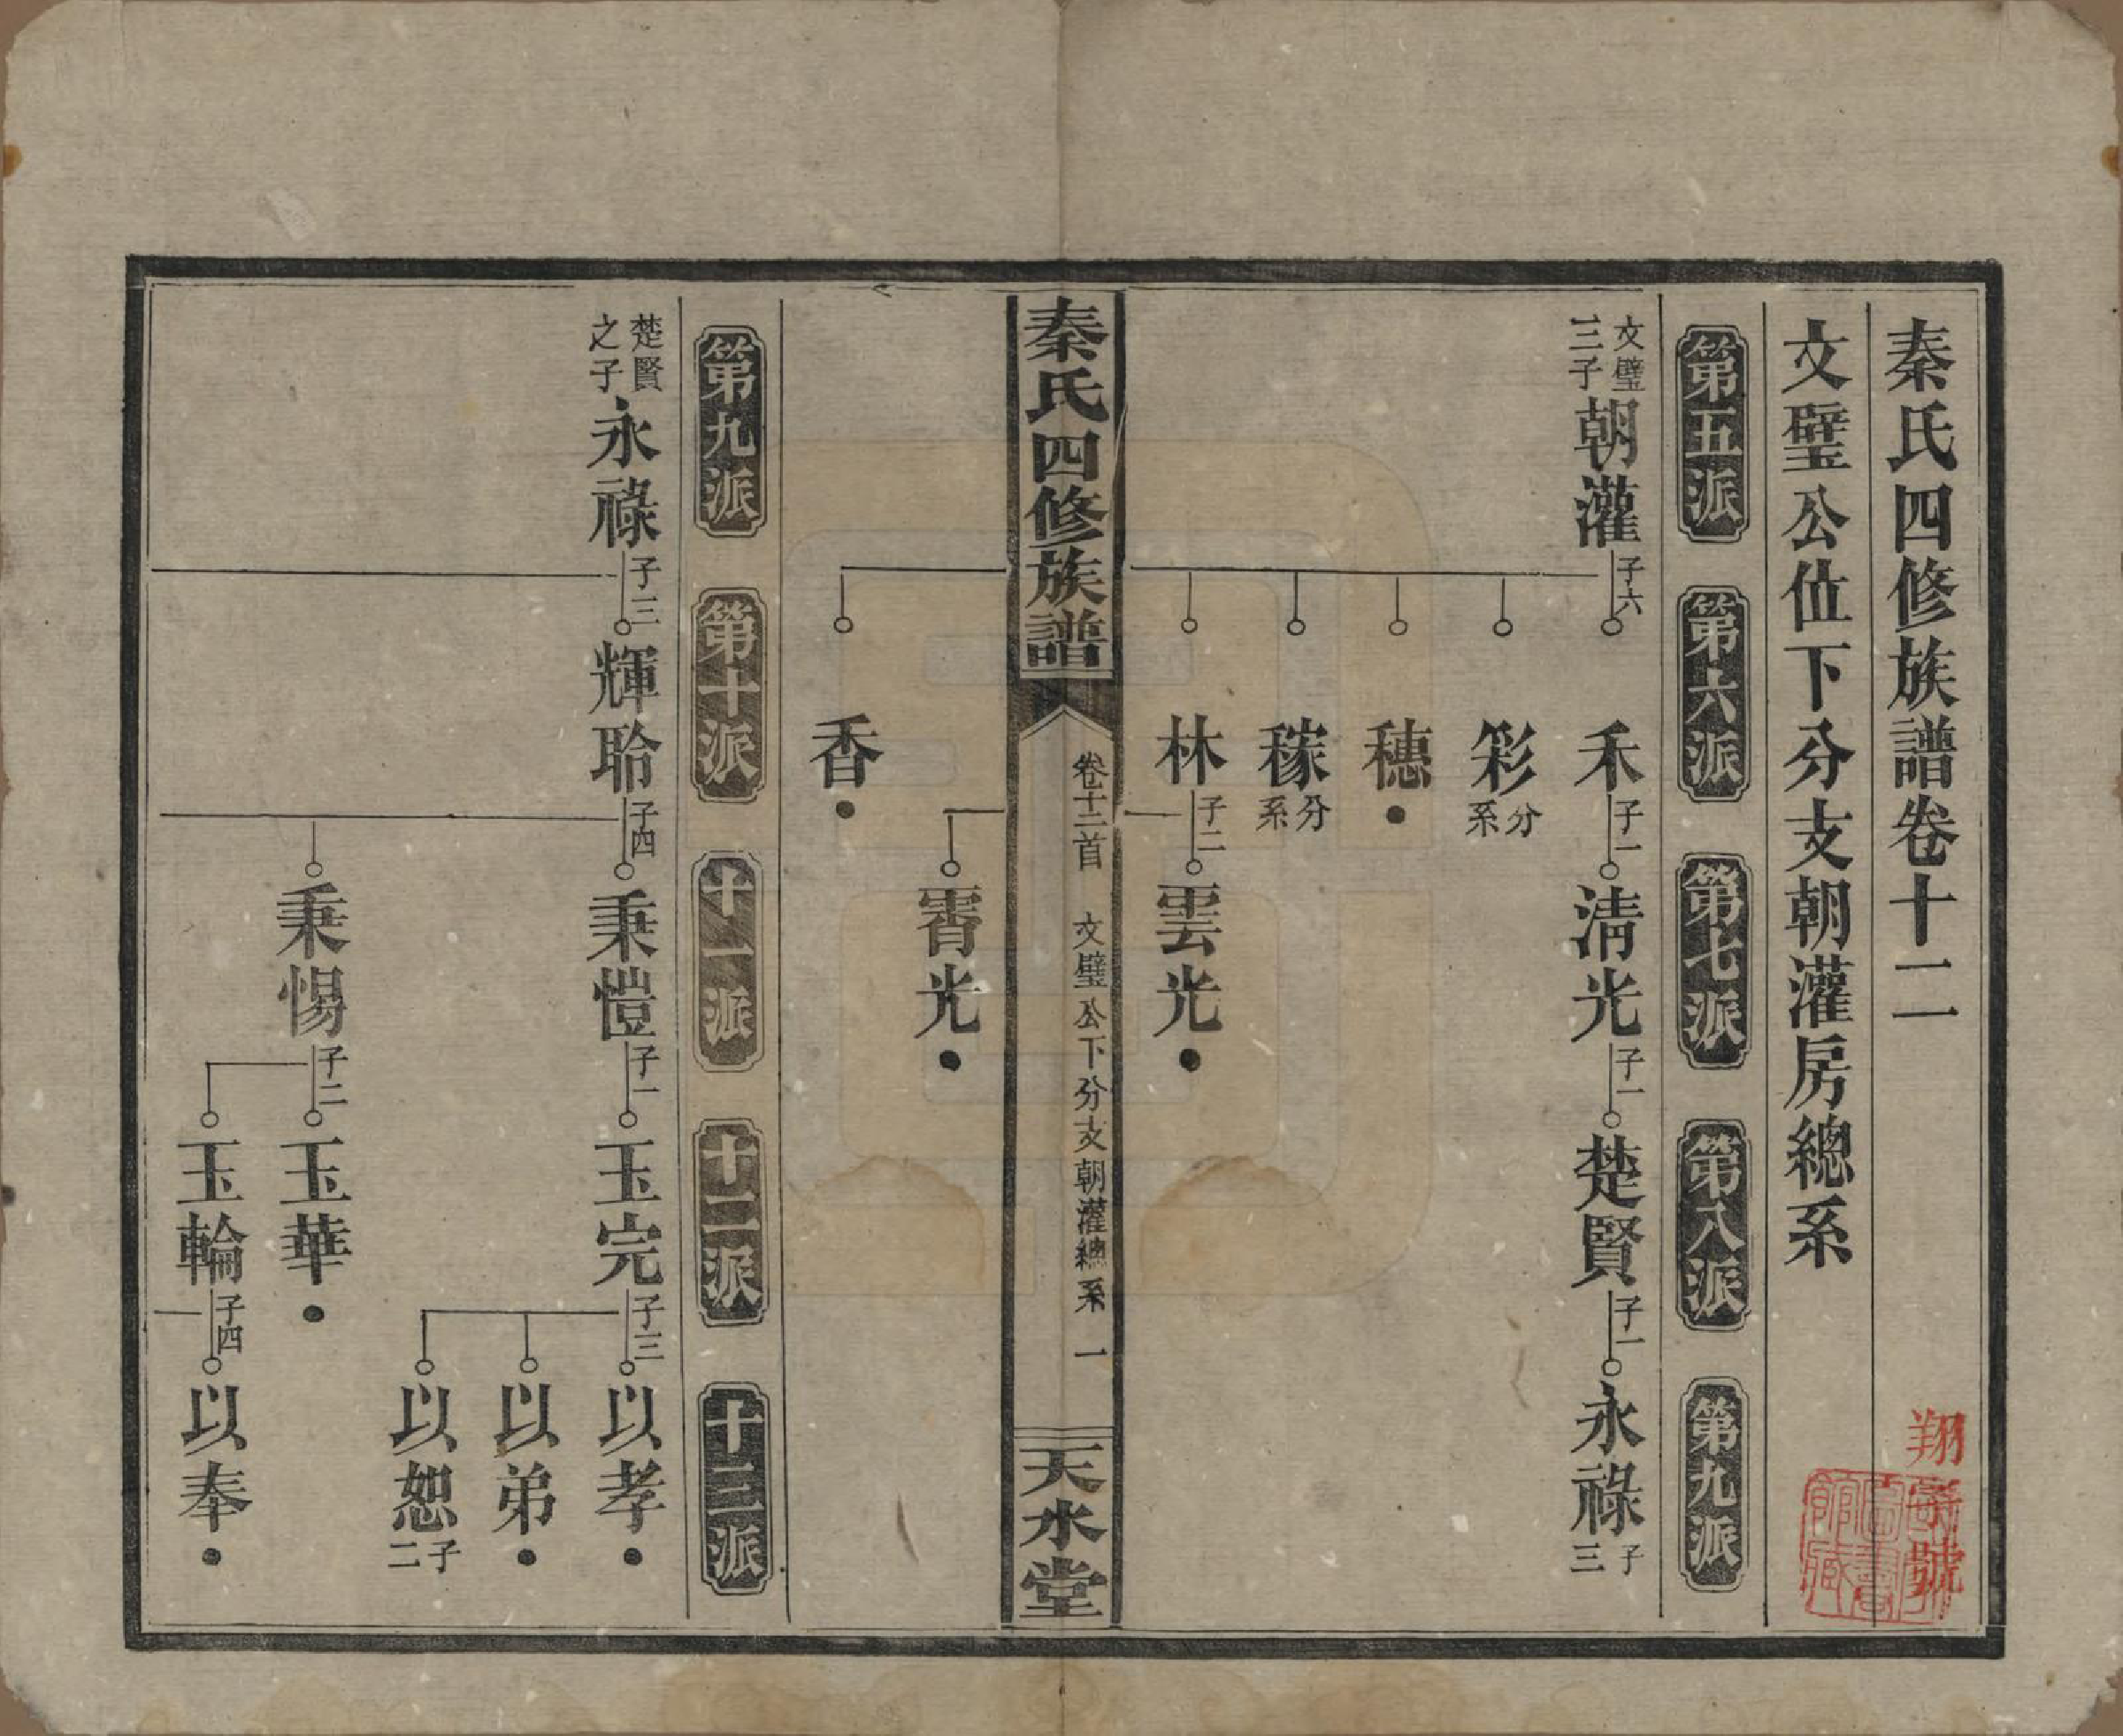 秦氏四修族譜卷十二
文璧公位下分支朝灌房總系
第五派 第六派 第七派 第八派 第九派
文璧三子朝灌子六 禾子一 清光子一 楚賢子一 永祿子三
彩分系
穗
稼分系
林子二 雲光
秦氏四修族譜 卷十二首 文璧公下分支朝灌總系 一 天水堂
霄光
香
第九派 第十派 十一派 十二派 十三派
楚賢之子永祿子三 輝聆子四 秉愷子一 玉完子三 以孝
以弟
以恕子二
秉惕子二 玉華
玉輪子四 以奉
翔 號
圖書館藏